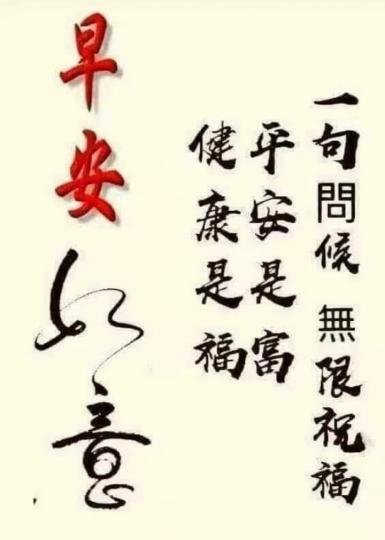 一句問候 無限祝福
平安是富
健康是福
早安
如意